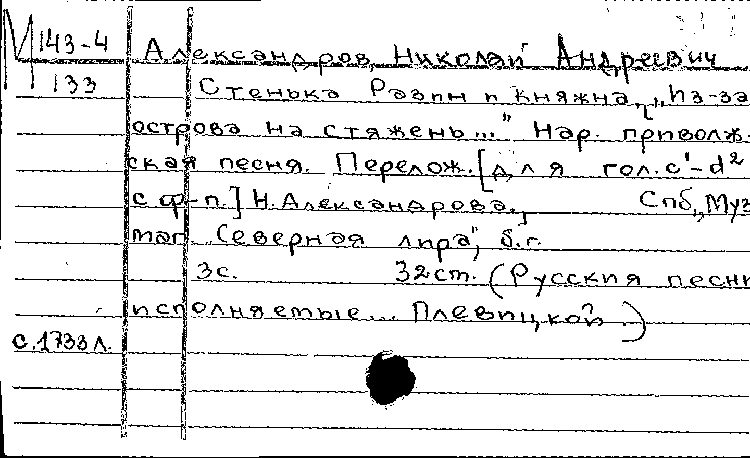 М 143-4 Александров, Николай Андреевич
133 Стенька Разин и княжна, „Из-за
острова на стяжень..." Нар. приволж-
ская песня. Перелож. [для гол. c¹-d²
с ф-п.] Н. Александрова. Спб, „Муз
маг. Северная лира", б.г.
3с. 32см. (Русския песни
исполняемые... Плевицкой.)
с.1733л.